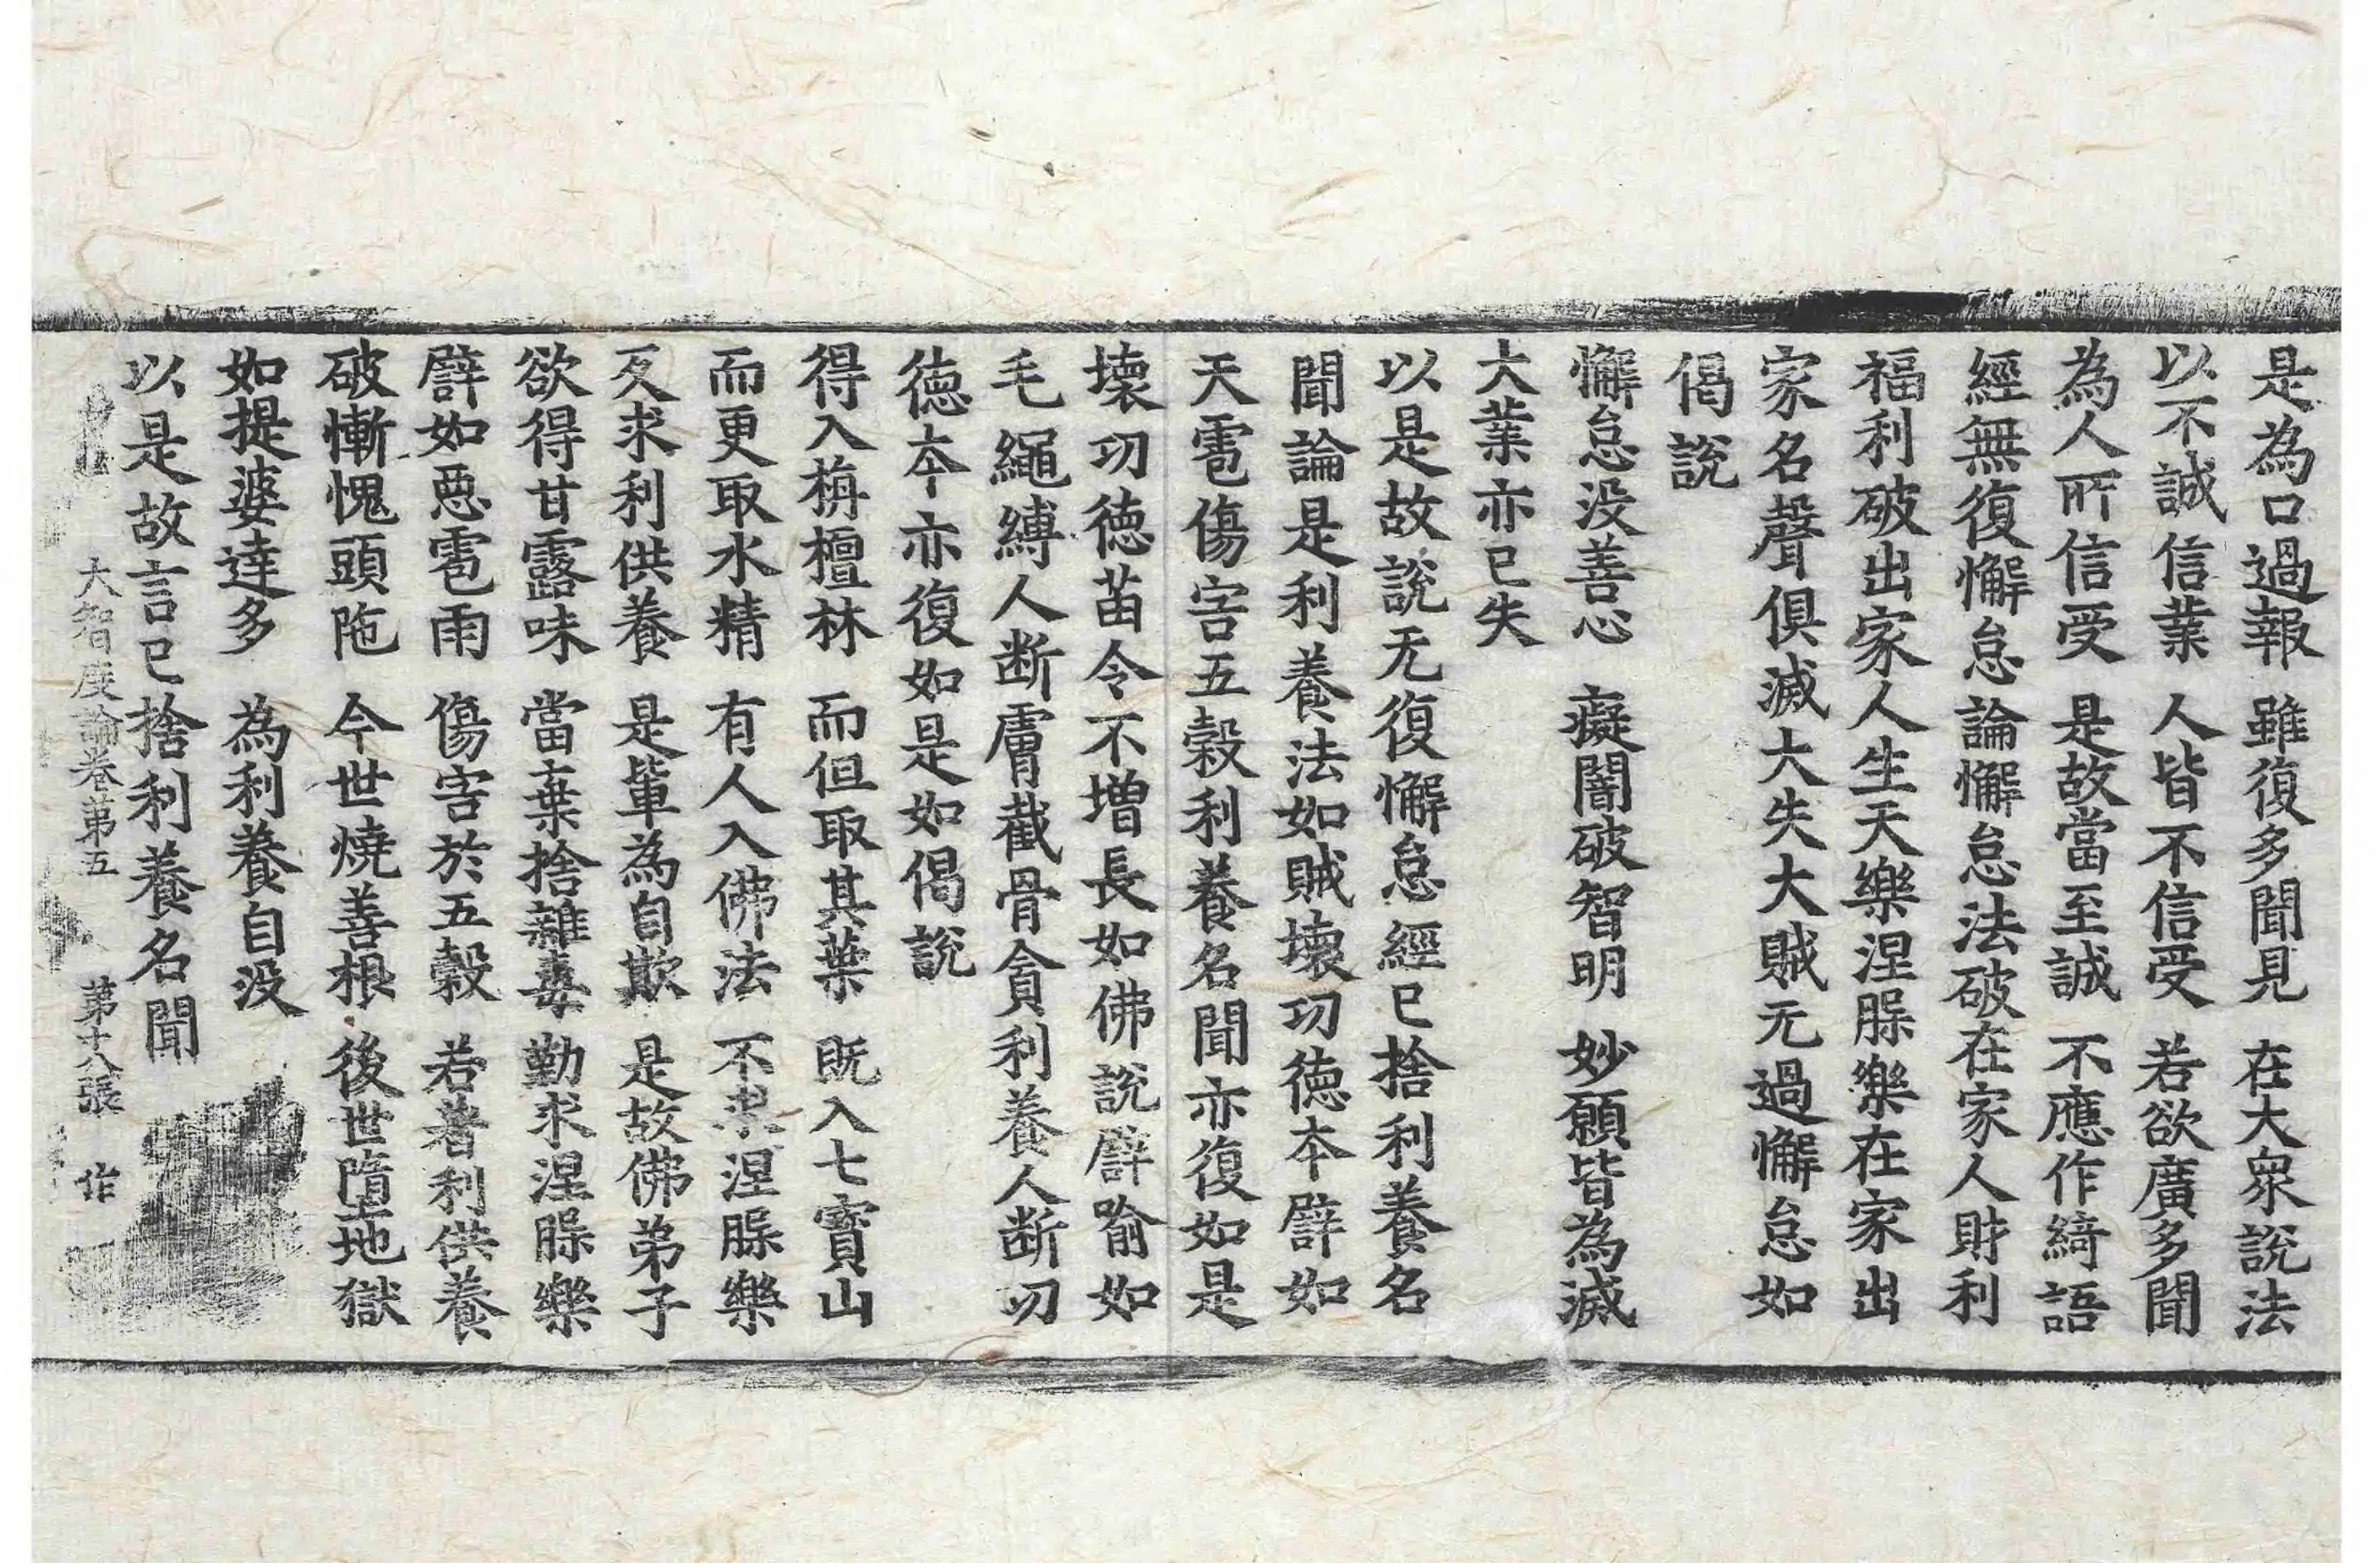 是為口過報　雖復多聞見　在大衆說法
以不誠信業　人皆不信受　若欲廣多聞
為人所信受　是故當至誠　不應作綺語
經無復懈怠論懈怠法破在家人財利
福利破出家人生天樂涅槃樂在家出
家名聲俱滅大失大賊无過懈怠如
偈說
懈怠没善心　癡闇破智明　妙願皆為滅
大業亦已失
以是故說无復懈怠經已捨利養名
聞論是利養法如賊壊功徳本譬如
天雹傷害五穀利養名聞亦復如是
壊功徳苗令不増長如佛說譬喻如
毛繩縛人断膚截骨貪利養人断功
徳本亦復如是如偈說
得入栴檀林　而但取其葉　既入七寳山
而更取水精　有人入佛法　不求涅槃樂
反求利供養　是軰為自欺　是故佛弟子
欲得甘露味　當棄捨雜毒　勤求涅槃樂
譬如惡雹雨　傷害於五穀　若著利供養
破慚愧頭陁　今世燒善根　後世墮地獄
如提婆達多　為利養自没
以是故言已捨利養名聞
大智度論卷第五　第十八張　作